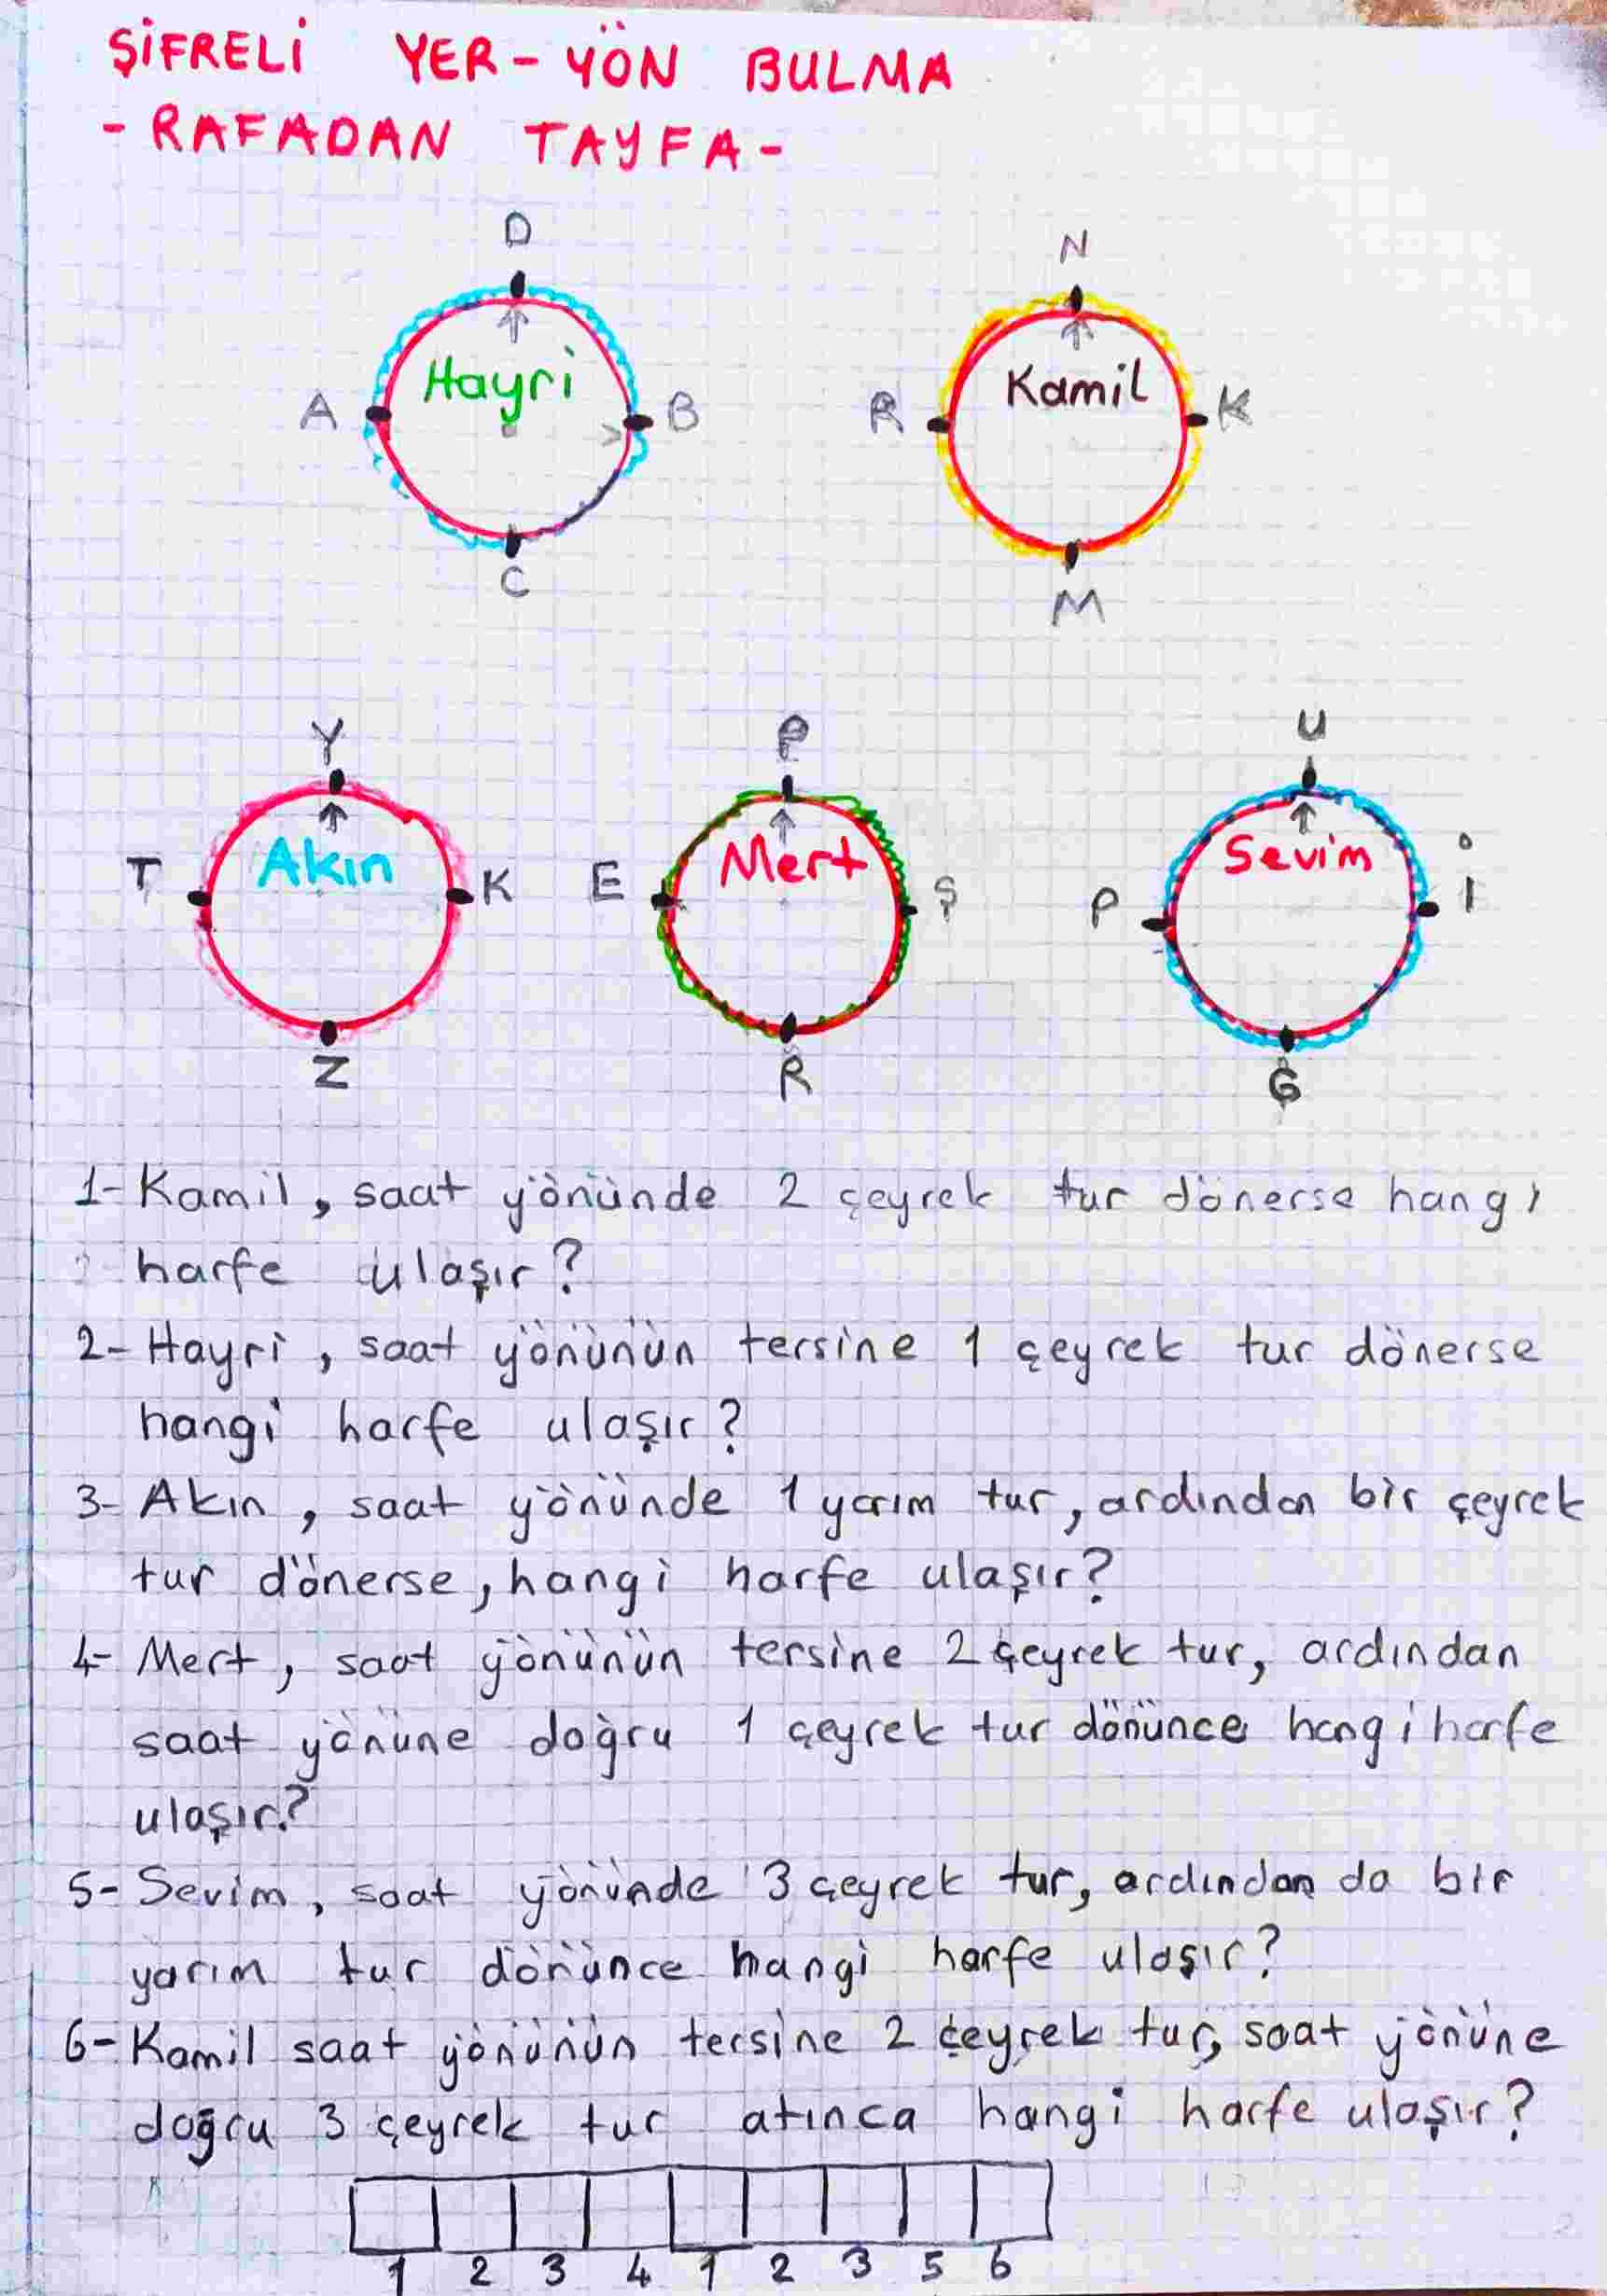 ŞİFRELİ YER-YÖN BULMA
-RAFADAN TAYFA-
D
N
Hayri
Kamil
A
B
R
K
C
M
Y
P
U
Akın
Mert
Sevim
T
K
E
Ş
P
İ
Z
R
G
1- Kamil, saat yönünde 2 çeyrek tur dönerse hangi
harfe ulaşır?
2- Hayri, saat yönünün tersine 1 çeyrek tur dönerse
hangi harfe ulaşır?
3- Akın, saat yönünde 1 yarım tur, ardından bir çeyrek
tur dönerse, hangi harfe ulaşır?
4- Mert, saat yönünün tersine 2 çeyrek tur, ardından
saat yönüne doğru 1 çeyrek tur dönünce hangi harfe
ulaşır?
5- Sevim, saat yönünde 3 çeyrek tur, ardından da bir
yarım tur dönünce hangi harfe ulaşır?
6- Kamil saat yönünün tersine 2 çeyrek tur, saat yönüne
doğru 3 çeyrek tur atınca hangi harfe ulaşır?
1 2 3 4 1 2 3 5 6